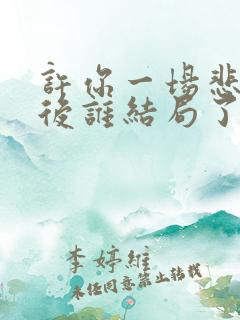 許你一場悲
後誰結局了
李婷維
未經同意禁止轉載